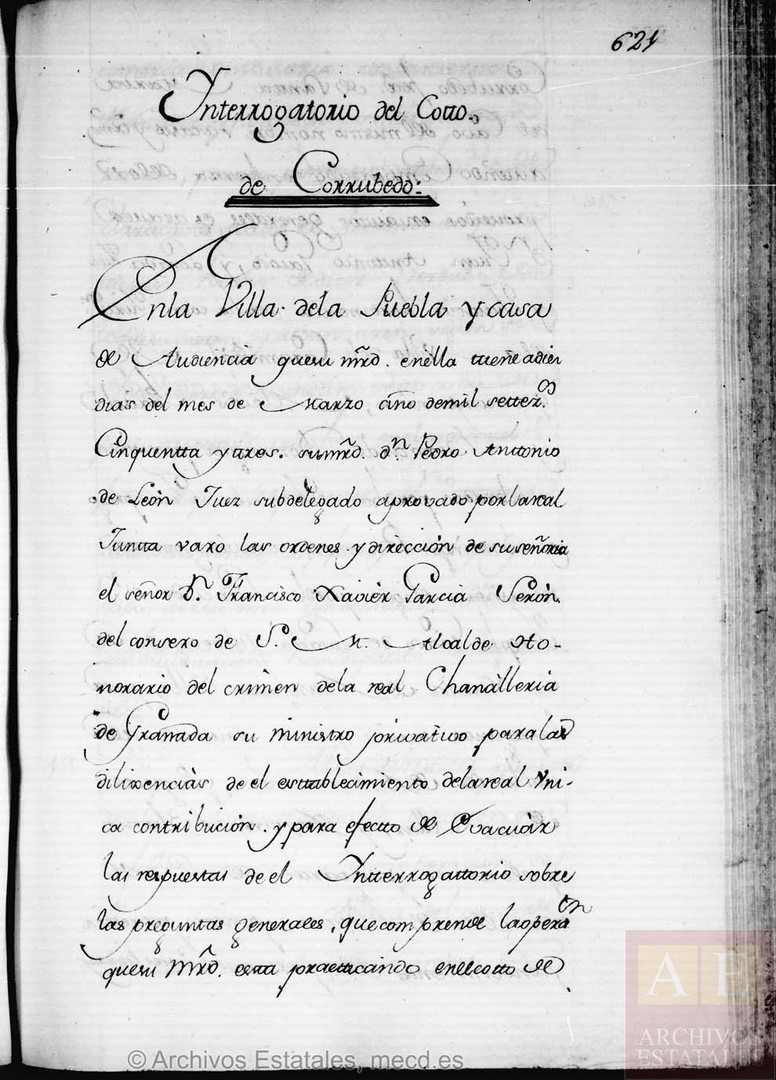 621
Ynterrogatorio del Cotto
de Corrubedo:
Enla Villa dela Puebla y casa
de Audiencia quesu mrd. enella tiene adiez
dias del mes de Marzo año demil settez.os
Cinquentta y tres. sumrd. dn. Pedro Anttonio
de León Juez subdelegado aprovado porlareal
Juntta vaxo las ordenes y dirección de su señoria
el señor Dn. Francisco Xavier Garcia Serón
del consexo de S. M. Alcalde Ho-
norario del crimen dela real Chancilleria
de Granada su ministro privativo paralas
dilixencias de el esttablecimiento delareal Vni-
ca contribución. y para efecto de Evacuàr
las respuestas de el Ynterrogattorio sobre
las preguntas generales, que comprende laoperaon
quesu Mrd. estta practticando enelcotto de
© Archivos Estatales, mecd.es
AE
ARCHIVOS
ESTATALES